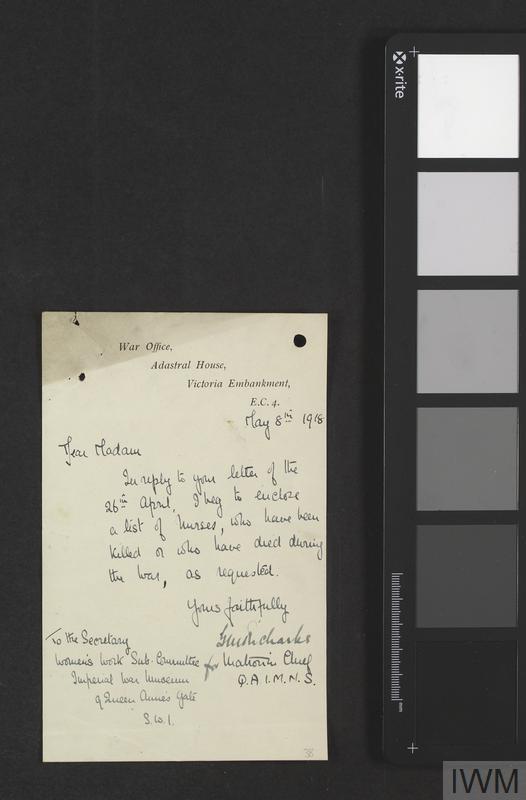 x·rite
War Office,
Adastral House,
Victoria Embankment,
E.C. 4.
May 8th 1918
Dear Madam
In reply to your letter of the
26th April, I beg to enclose
a list of Nurses, who have been
killed or who have died during
the War, as requested.
Yours faithfully
To the Secretary
Women's Work Sub-Committee
Imperial War Museum
9 Queen Anne's Gate
S.W.1.
for Matron in Chief
Q.A.I.M.N.S.
38
mm
IWM